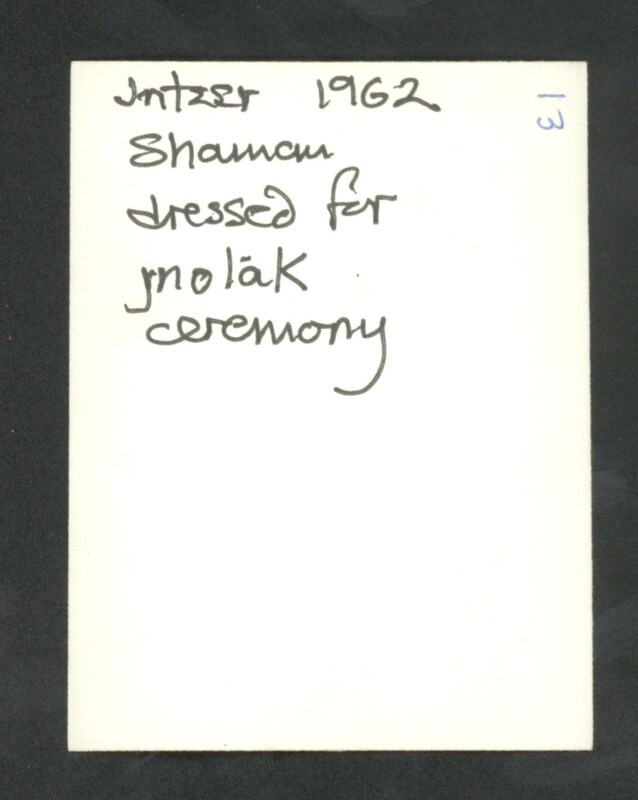 Jntzer 1962
Shaman
dressed for
molāk
ceremony
13